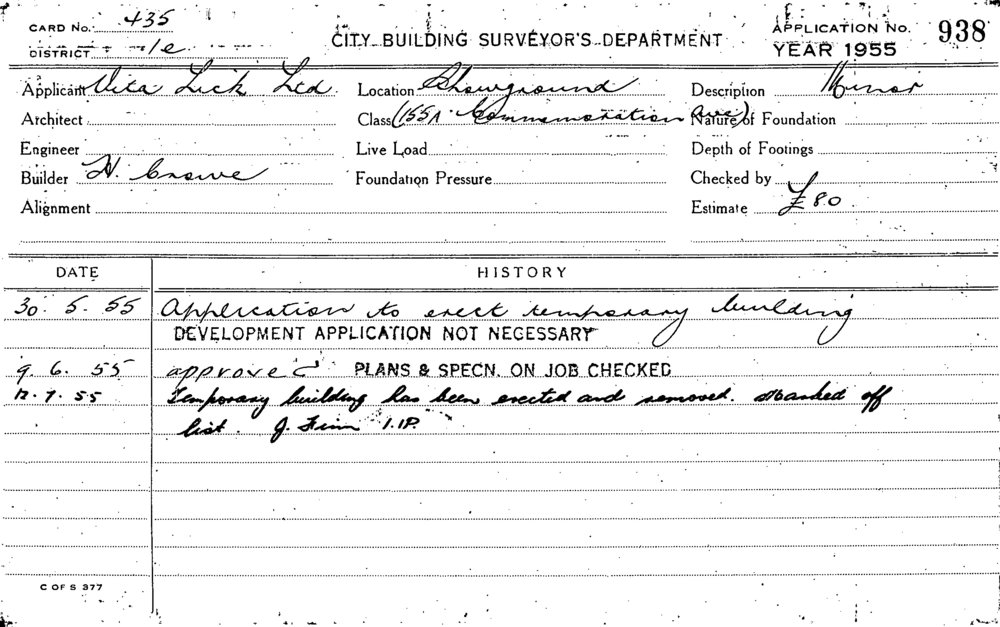 CARD No. 435
DISTRICT 1e
CITY BUILDING SURVEYOR'S DEPARTMENT
APPLICATION No. 938
YEAR 1955
Applicant Vita Lick Ltd. Location Showground Description Minor
Architect Class (155A Commemoration Ave) Nature of Foundation
Engineer Live Load Depth of Footings
Builder H. Crowe Foundation Pressure Checked by
Alignment Estimate £80
DATE HISTORY
30. 5. 55 Application to erect temporary building
DEVELOPMENT APPLICATION NOT NECESSARY
9. 6. 55 approved PLANS & SPECN. ON JOB CHECKED
12. 7. 55 Temporary building has been erected and removed. Marked off
list. J. Finn
C OF S 377